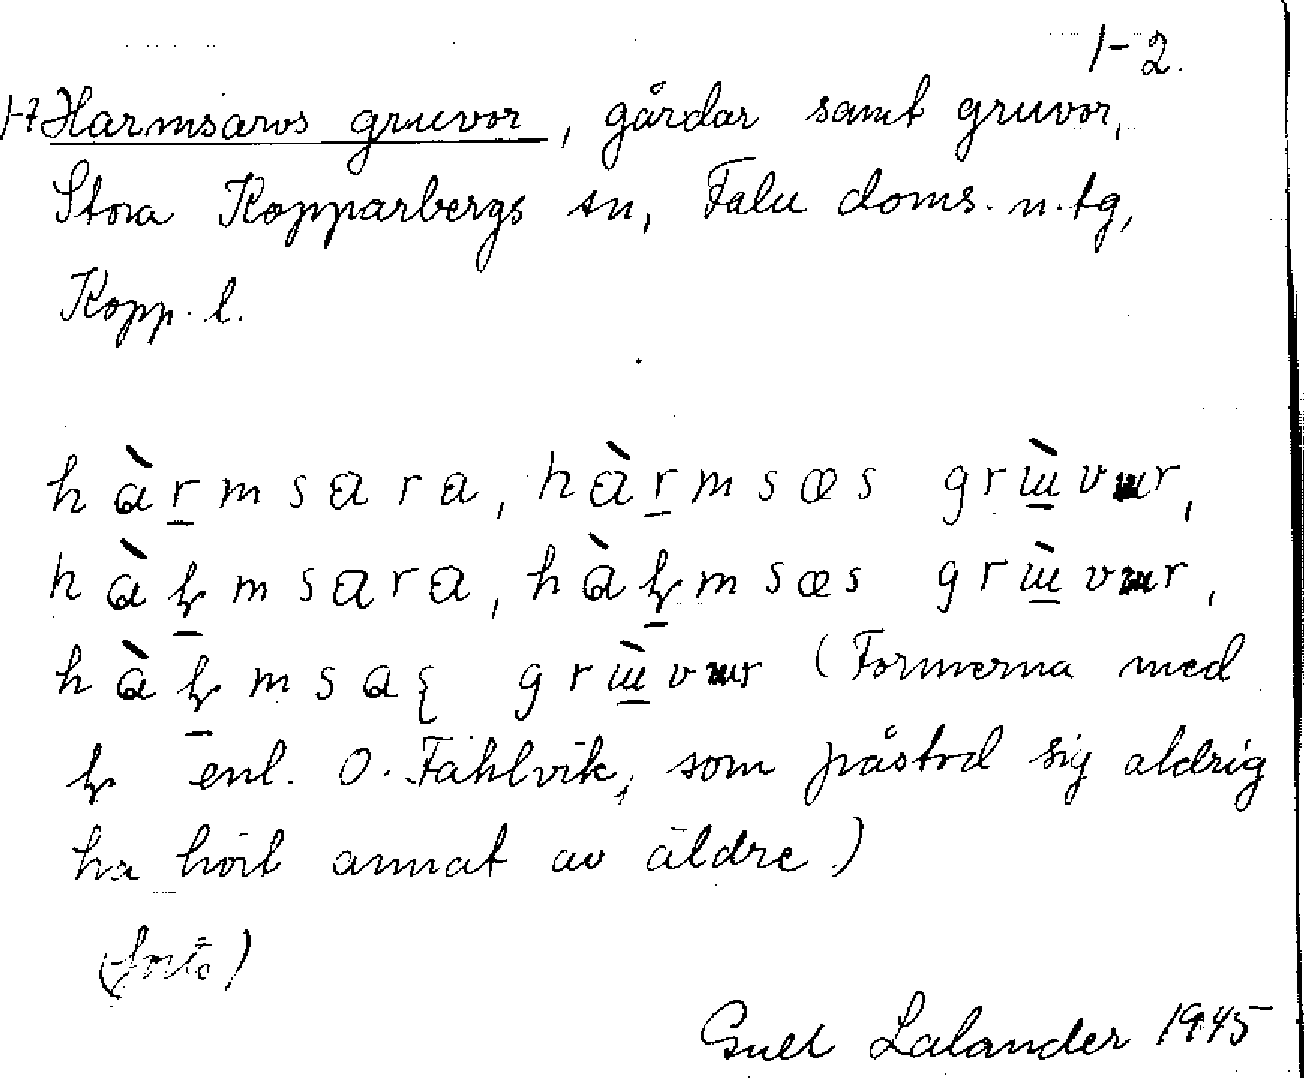 1-2.
Harmsarvs gruvor, gårdar samt gruvor,
Stora Kopparbergs sn, Falu doms. n. tg,
Kopp. l.
hàrmsara, hàrmsœs grɯ̀vɯr,
hàꜧmsara, hàꜧmsœs grɯ̀vɯr,
hàꜧmsaꞩ grɯ̀vɯr (Formerna med
ꜧ enl. O. Fahlvik, som påstod sig aldrig
ha hört annat av äldre.)
(forts)
Lalander 1945